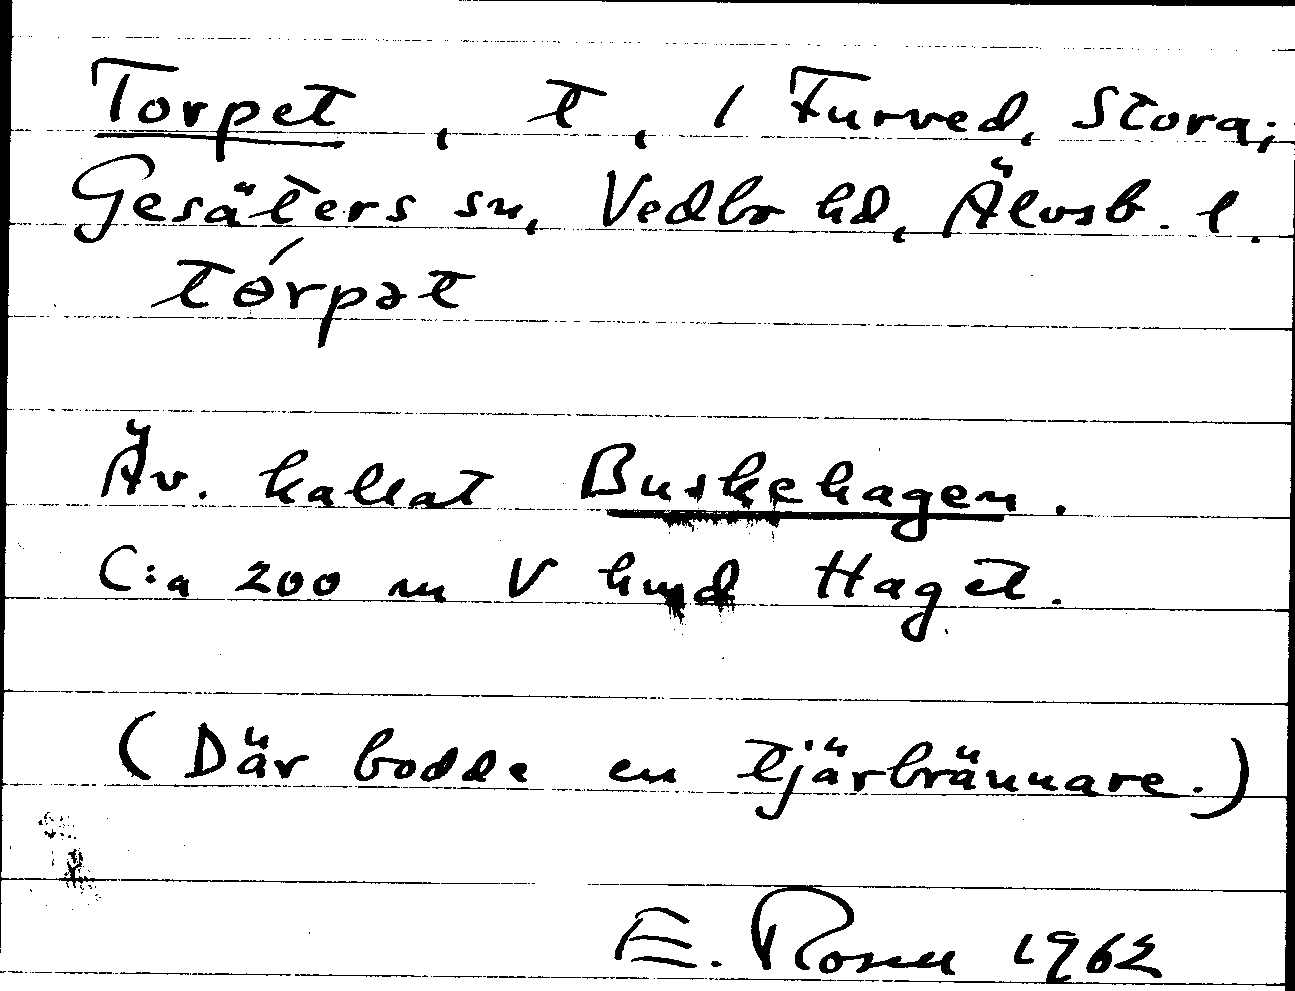 Torpet, t, / Furved, Stora;
Gesäters sn, Vedbo hd, Älvsb. l.
tǿrpət
Äv. kallat Buskehagen.
C:a 200 m V hmd Haget.
(Där bodde en tjärbrännare.)
E. Rosen 1962